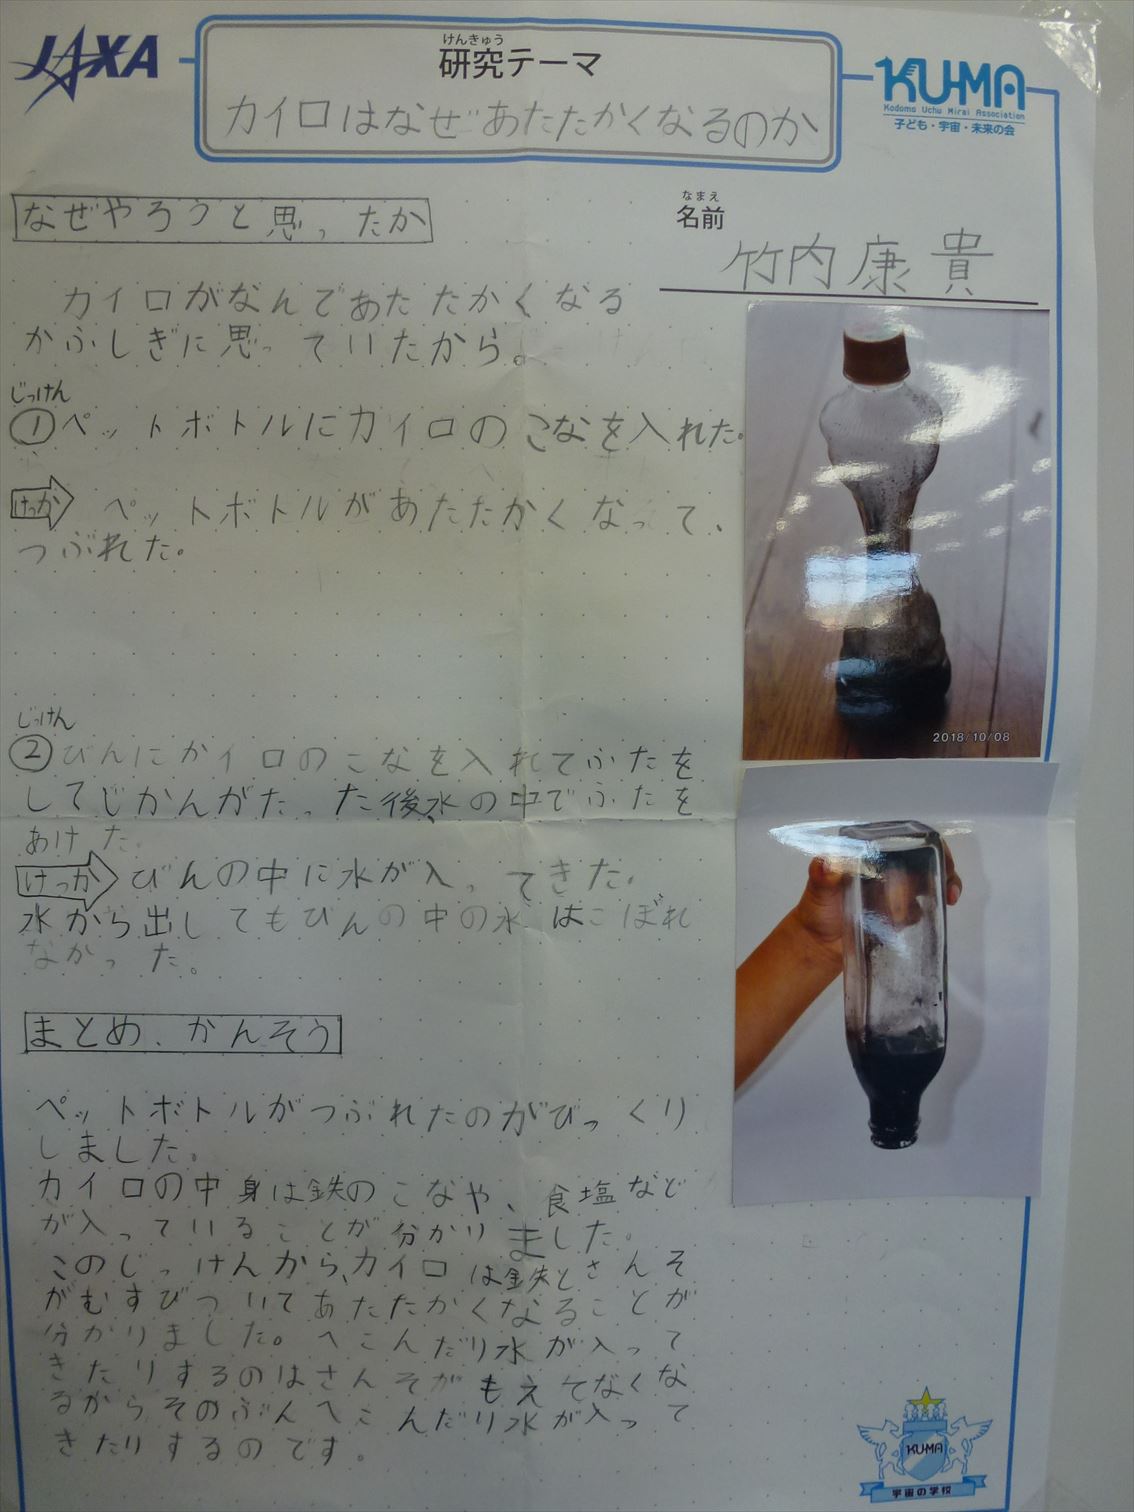 JAXA
けんきゅう
研究テーマ
カイロはなぜあたたかくなるのか
KU-MA
Kodomo Uchu Mirai Association
子ども・宇宙・未来の会
なぜやろうと思ったか
なまえ
名前
竹内康貴
カイロがなんであたたかくなる
かふしぎに思っていたから。
じっけん
①ペットボトルにカイロのこなを入れた。
けっか ペットボトルがあたたかくなって、
つぶれた。
2018/10/08
じっけん
②びんにカイロのこなを入れてふたを
してじかんがたった後、水の中でふたを
あけた。
けっか びんの中に水が入ってきた。
水から出してもびんの中の水はこぼれ
なかった。
まとめ、かんそう
ペットボトルがつぶれたのがびっくり
しました。
カイロの中身は鉄のこなや、食塩など
が入っていることが分かりました。
このじっけんから、カイロは鉄とさんそ
がむすびついてあたたかくなることが
分かりました。へこんだり水が入って
きたりするのはさんそがもえてなくな
るからそのぶんへこんだり水が入って
きたりするのです。
KU-MA
宇宙の学校